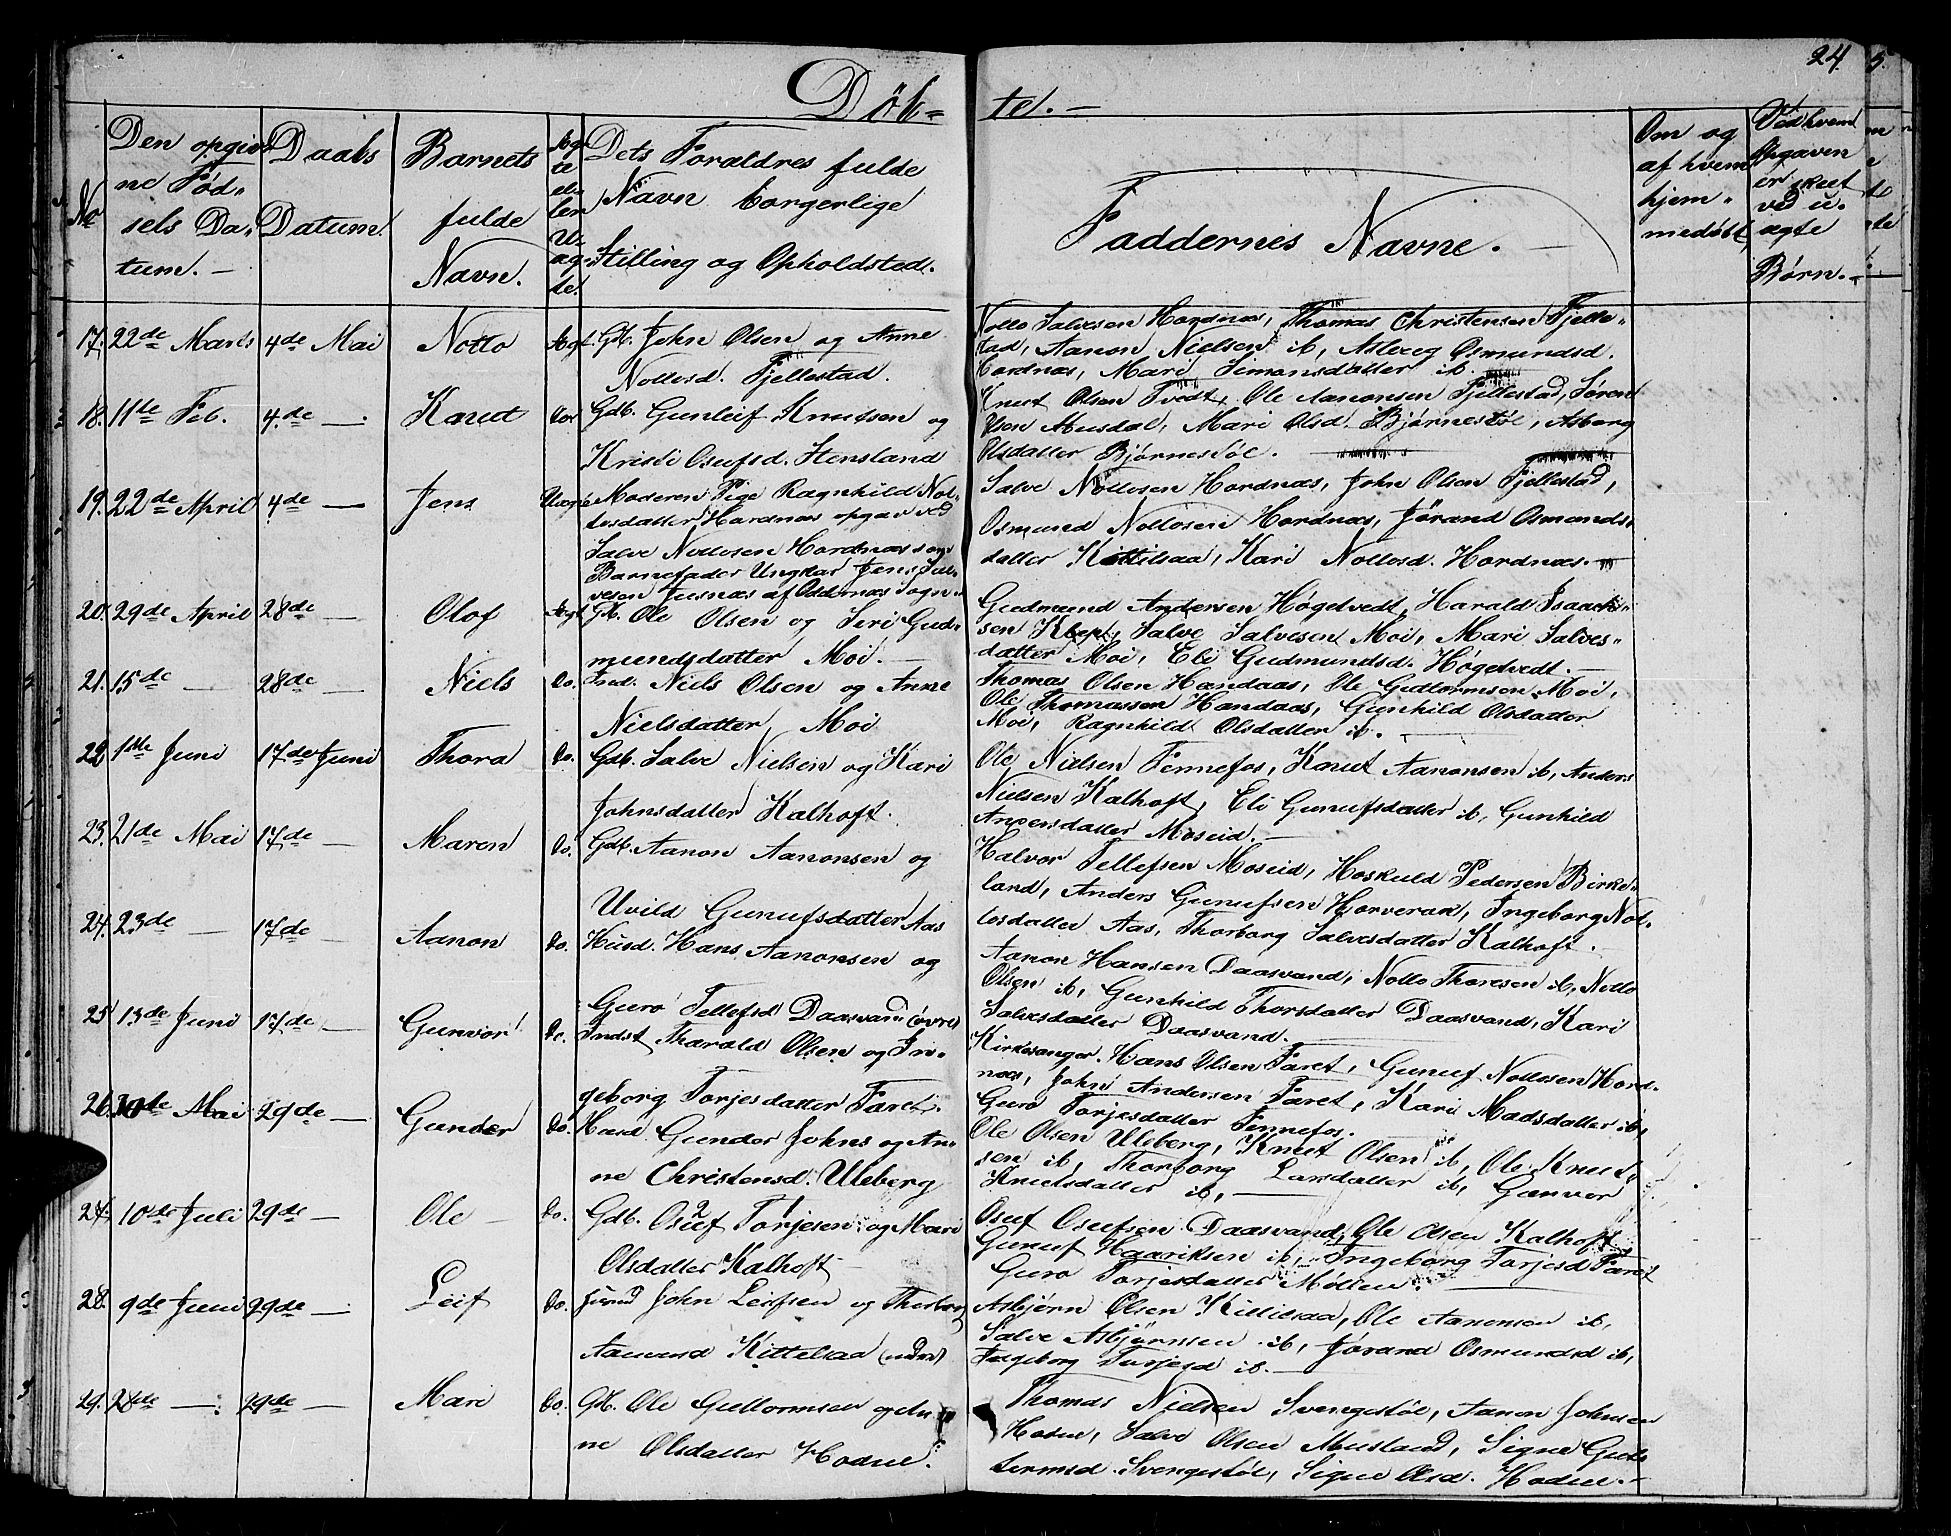 24.
Døb=
te.-
No
Den opgiv
ne Fød-
sels Da-
tum.-
Daabs
Datum.
Barnets
fulde
Navn.
Ægte
eller
Uægte.
Dets Forældres fulde
Navn borgerlige
Stilling og Opholdsted.
Faddernes Navne.-
Om og
af hvem
hjem-
medøbt
Ved hvem
Opgaven
er skeet
ved u-
ægte
Børn.-
17. 22de Marts 4de Mai Notto Ægt. Gdb. John Olsen og Anne
Nottosd. Fjellestad.
Notto Salvesen Hordnæs, Thomas Christensen Fjelle-
stad, Aanon Nielsen ib, Asberg Osmundsd.
Hordnæs, Mari Simonsdatter ib.
18. 11te Feb. 4de — Knud do. Gdb. Gunleif Knudsen og
Kristi Osufsd. Stensland
Knut Olsen Tvedt, Ole Aanonsen Fjellestad, Søren
Olsen Musdal, Mari Olsd. Bjørnestøl, Asborg
Olsdatter Bjørnestøl.
19. 22de April 4de — Jens Uægte Moderen Pige Ragnhild Not-
tosdatter Hordnæs opgav ved
Salve Nottosen Hordnæs som
Barnefader Ungkar Jens Sal-
vesen Justnæs af Oddernæs Sogn.
Salve Nottosen Hordnæs, John Olsen Fjellestad,
Osmund Nottosen Hordnæs, Jørand Osmunds-
datter Kittilsaa, Kari Nottosd. Hordnæs.
20. 29de April 28de — Olaf Ægt. Gdb. Ole Olsen og Siri Gud-
mundsdatter Moi.—
Gudmund Andersen Høgetvedt, Harald Isaach-
sen Klep, Salve Salvesen Moi, Mari Salves-
datter Moi, Eli Gudmundsd. Høgetvedt.—
21. 15de — 28de — Niels do. Ind. Niels Olsen og Anne
Nielsdatter Moi
Thomas Olsen Handaas, Ole Guttormsen Moi,
Ole Thomassen Handaas, Gunhild Olsdatter
Moi, Ragnhild Olsdatter ib.—
22. 1ste Juni 17de Juni Thora do. Gdb. Salve Nielsen og Kari
Johnsdatter Kalhoft.
Ole Nielsen Fennefos, Knut Aanonsen ib, Anders
Nielsen Kalhoft, Eli Gunufsdatter ib, Gunhild
Andersdatter Moseid.—
23. 21de Mai 17de — Maren do. Gdb. Aanon Aanonsen og
Uvild Gunufsdatter Aas
Halvor Tellefsen Moseid, Hoskuld Pedersen Birke-
land, Anders Gunufsen Horverak, Ingeborg Not-
tosdatter Aas, Thorborg Salvesdatter Kalhoft.
24. 23de — 17de — Aanon do. Husd. Hans Aanonsen og
Guro Tellefsd Daasvand (øvre)
Aanon Hansen Daasvand, Notto Thoresen ib, Notto
Olsen ib, Gunhild Thorsdatter Daasvand, Kari
Salvesdatter Daasvand.—
25 13de Juni 17de — Gunvor do. Indst. Tharald Olsen og In-
geborg Torjesdatter Faret.
Kirkesanger. Hans Olsen Faret, Gunuf Nottosen Hord-
næs, John Andersen Faret, Kari Madsdatter ib,
Guro Torjesdatter Fennefos.
26. 30de Mai 29de — Gunder do. Husd. Gunder Johns og An-
ne Christensd. Uleberg
Ole Olsen Uleberg, Knut Olsen ib, Ole Knut-
sen ib, Thorborg Larsdatter ib, Gunvor
Knutsdatter ib,—
27. 10de Juli 29de — Ole — do. Gdb. Osuf Torjesen og Mari
Olsdatter Kalhoft
Osuf Osufsen Daasvand, Ole Olsen Kalhoft,
Gunuf Haariksen ib, Ingeborg Torjesd Faret
Guro Torjesdatter Møllen.
28. 9de Juni 29de — Leif do. John Leifsen og Thorborg
Aanund Kittelsaa (nedre)
Asbjørn Olsen Kittilsaa, Ole Aanonsen ib,
Salve Asbjørnsen ib, Jørand Osmundsd ib,
Ingeborg Torjesd ib.—
29. 28de — 29de — Mari do. Gdb. Ole Guttormsen og An-
ne Olsdatter Hodne.
Thomas Nielsen Svengestøl, Aanon Johnsen
Hodne, Salve Olsen Musland, Signe Gutt-
tormsd. Svengestøl, Signe Olsd. Hodne.-